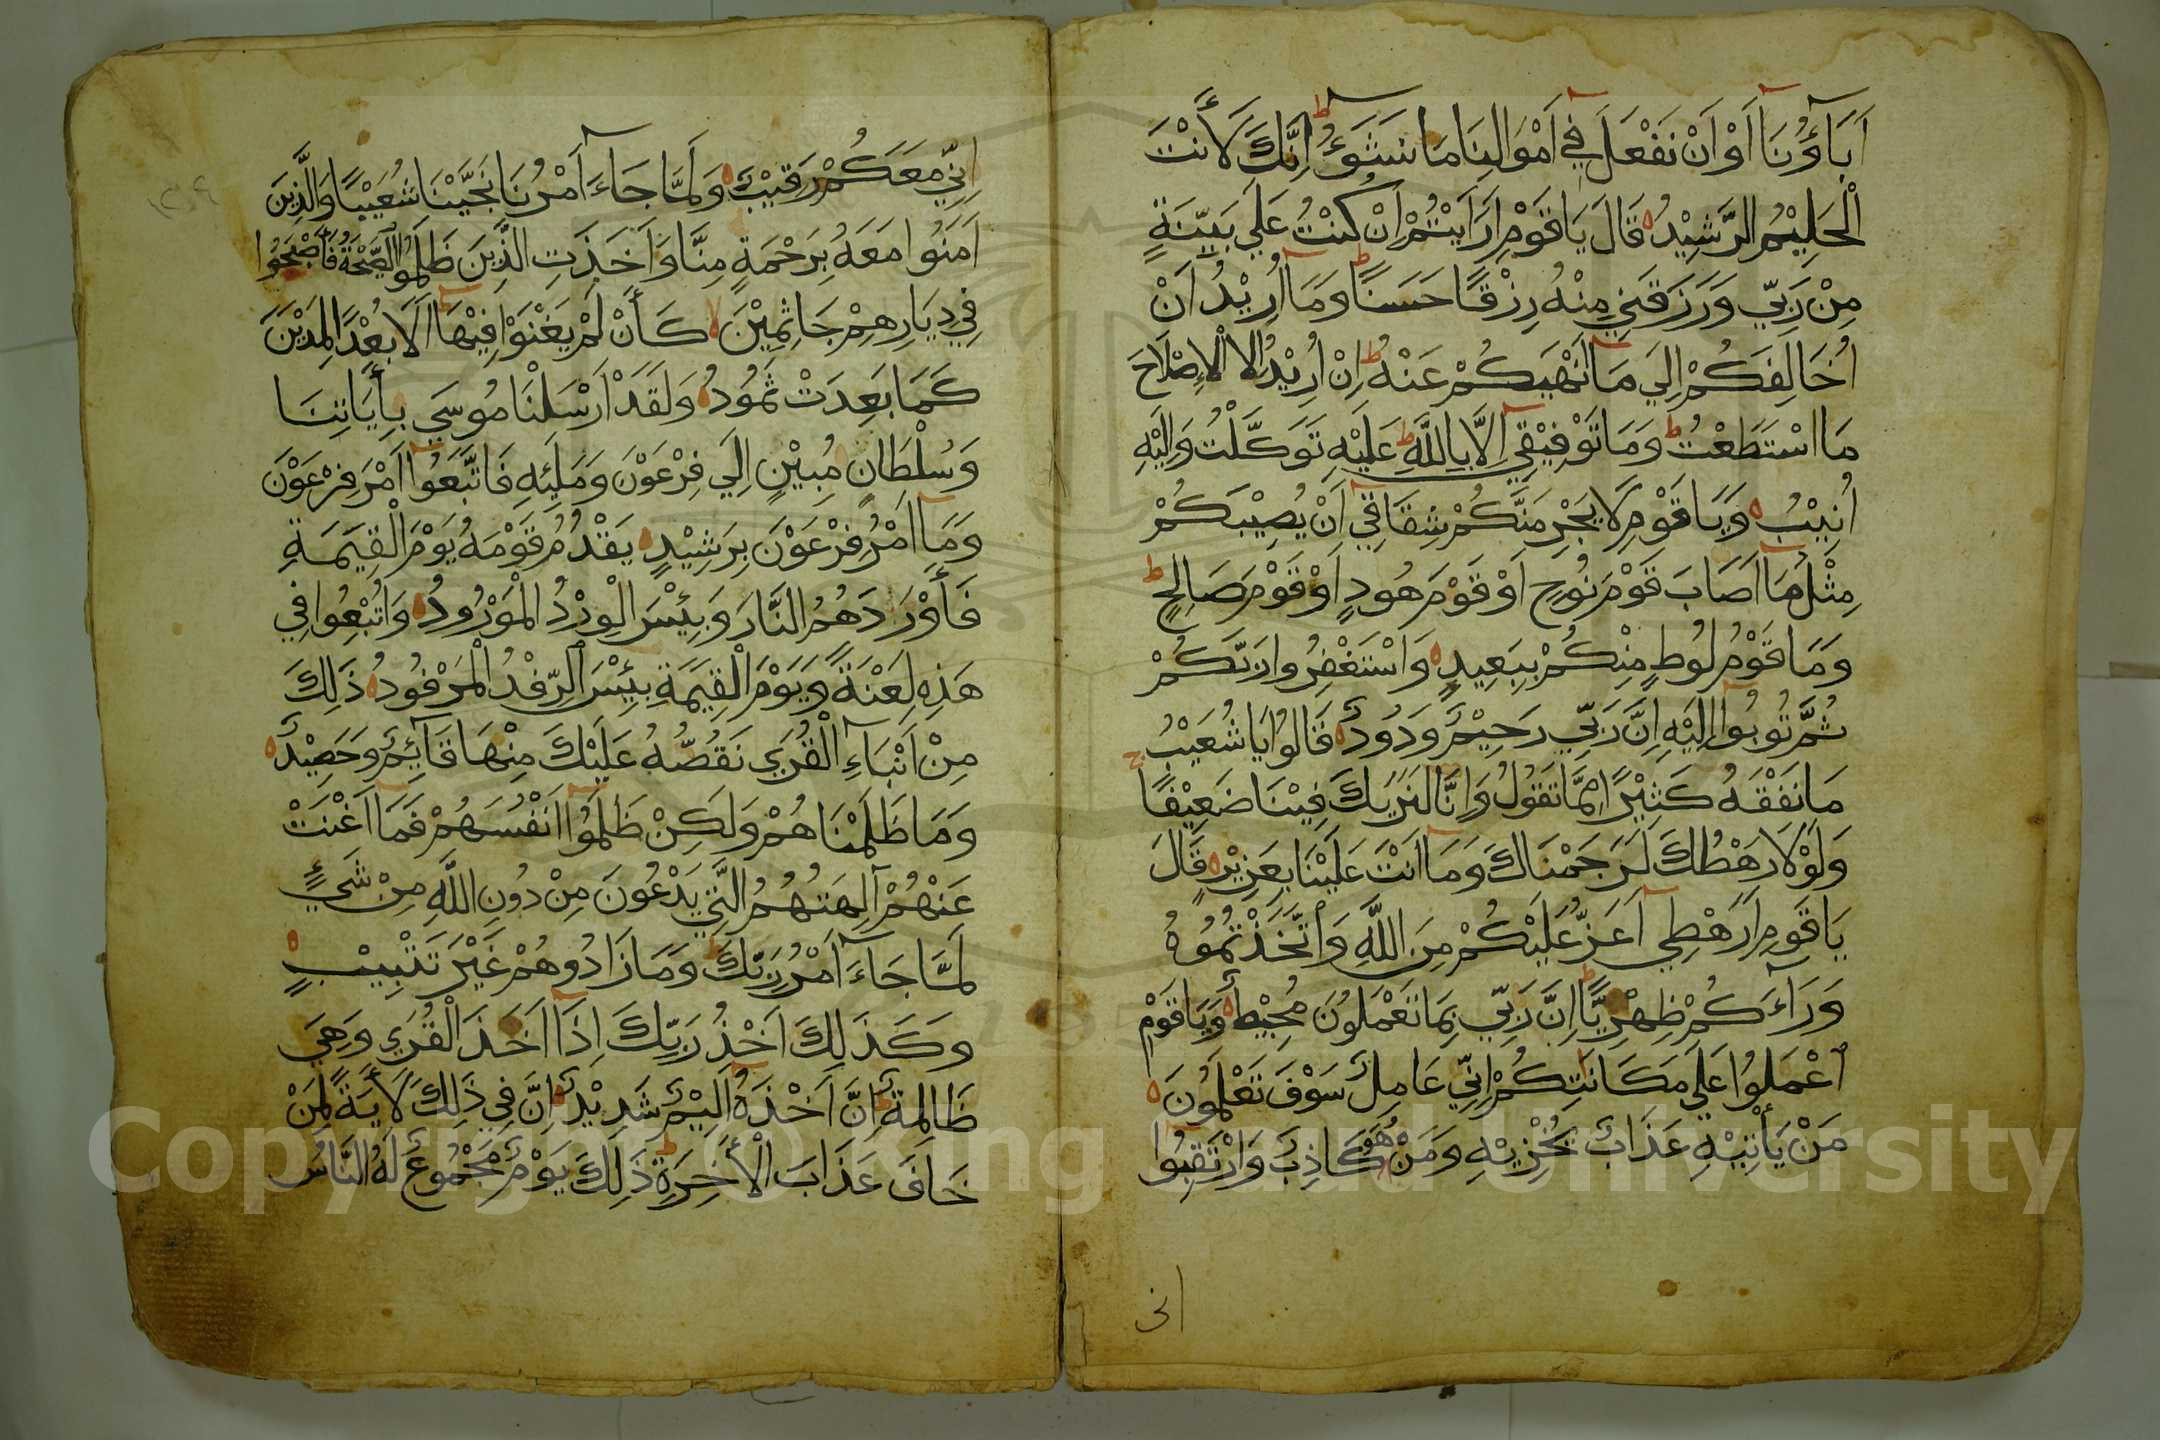 اَبَآؤُنَآ اَوْ اَنْ نَفْعَلَ فِيٓ اَمْوَالِنَا مَا نَشَٓؤُاۖ اِنَّكَ لَأَنْتَ
الْحَلِيْمُ الرَّشِيْدُ قَالَ يَا قَوْمِ اَرَاَيْتُمْ اِنْ كُنْتُ عَلَي بَيِّنَةٍ
مِنْ رَبِّي وَرَزَقَنِي مِنْهُ رِزْقًا حَسَنًا ط وَمَآ اُرِيْدُ اَنْ
اُخَالِفَكُمْ اِلَي مَآ اَنْهَيكُمْ عَنْهُ ط اِنْ اُرِيْدُ اِلَّا الْاِصْلَاحَ
مَا اسْتَطَعْتُ ط وَمَا تَوْفِيْقِيٓ اِلَّا بِاللَّهِ ط عَلَيْهِ تَوَكَّلْتُ وَاِلَيْهِ
اُنِيْبُ وَيَا قَوْمِ لَا يَجْرِمَنَّكُمْ شِقَاقِيٓ اَنْ يُصِيْبَكُمْ
مِثْلُ مَآ اَصَابَ قَوْمَ نُوْحٍ اَوْ قَوْمَ هُودٍ اَوْ قَوْمَ صَالِحٍ ط
وَمَا قَوْمُ لُوطٍ مِنْكُمْ بِبَعِيدٍ وَاسْتَغْفِرُوا رَبَّكُمْ
ثُمَّ تُوبُوآ اِلَيْهِ اِنَّ رَبِّي رَحِيْمٌ وَدُودٌ قَالُوا يَا شُعَيْبُ
مَا نَفْقَهُ كَثِيْرًا مِمَّا تَقُولُ وَاِنَّا لَنَرَيكَ فِيْنَا ضَعِيْفًا ج
وَلَوْلَا رَهْطُكَ لَرَجَمْنَاكَ وَمَآ اَنْتَ عَلَيْنَا بِعَزِيْزٍ قَالَ
يَا قَوْمِ اَرَهْطِيٓ اَعَزُّ عَلَيْكُمْ مِنَ اللَّهِ وَاتَّخَذْتُمُوهُ
وَرَآءَكُمْ ظِهْرِيًّا ط اِنَّ رَبِّي بِمَا تَعْمَلُونَ مُحِيْطٌ وَيَا قَوْمِ
اعْمَلُوا عَلَي مَكَانَتِكُمْ اِنِّي عَامِلٌ سَوْفَ تَعْلَمُونَ
مَنْ يَأْتِيْهِ عَذَابٌ يُخْزِيْهِ وَمَنْ هُوَ كَاذِبٌ وَارْتَقِبُوآ
انى
اِنِّي مَعَكُمْ رَقِيْبٌ وَلَمَّا جَآءَ اَمْرُنَا نَجَّيْنَا شُعَيْبًا وَالَّذِيْنَ
اَمَنُوا مَعَهُ بِرَحْمَةٍ مِنَّا وَاَخَذَتِ الَّذِيْنَ ظَلَمُوا الصَّيْحَةُ فَاَصْبَحُوا
فِي دِيَارِهِمْ جَاثِمِيْنَ لا كَأَنْ لَمْ يَغْنَوْا فِيْهَآ اَلَا بُعْدًا لِمَدْيَنَ
كَمَا بَعِدَتْ ثَمُودُ وَلَقَدْ اَرْسَلْنَا مُوسَي بِأَيَاتِنَا
وَسُلْطَانٍ مُبِيْنٍ اِلَي فِرْعَوْنَ وَمَلَئِهِ فَاتَّبَعُوآ اَمْرَ فِرْعَوْنَ
وَمَآ اَمْرُ فِرْعَوْنَ بِرَشِيْدٍ يَقْدُمُ قَوْمَهُ يَوْمَ الْقِيَمَةِ
فَأَوْرَدَهُمُ النَّارَ وَبِئْسَ الْوِرْدُ الْمَوْرُودُ وَاُتْبِعُوا فِي
هَذِهِ لَعْنَةً وَيَوْمَ الْقِيَمَةِ بِئْسَ الرِّفْدُ الْمَرْفُودُ ذَلِكَ
مِنْ اَنْبَآءِ الْقُرَي نَقُصُّهُ عَلَيْكَ مِنْهَا قَآئِمٌ وَحَصِيْدٌ
وَمَا ظَلَمْنَاهُمْ وَلَكِنْ ظَلَمُوآ اَنْفُسَهُمْ فَمَآ اَغْنَتْ
عَنْهُمْ آلِهَتُهُمُ الَّتِي يَدْعُونَ مِنْ دُونِ اللَّهِ مِنْ شَيْءٍ
لَمَّا جَآءَ اَمْرُ رَبِّكَ ط وَمَا زَادُوهُمْ غَيْرَ تَتْبِيْبٍ
وَكَذَلِكَ اَخْذُ رَبِّكَ اِذَآ اَخَذَ الْقُرَي وَهِيَ
ظَالِمَةٌ ط اِنَّ اَخْذَهُٓ اَلِيْمٌ شَدِيْدٌ اِنَّ فِي ذَلِكَ لَأَيَةً لِمَنْ
خَافَ عَذَابَ الْأَخِرَةِ ط ذَلِكَ يَوْمٌ مَجْمُوعٌ لَهُ النَّاسُ
Copyright © King Saud University